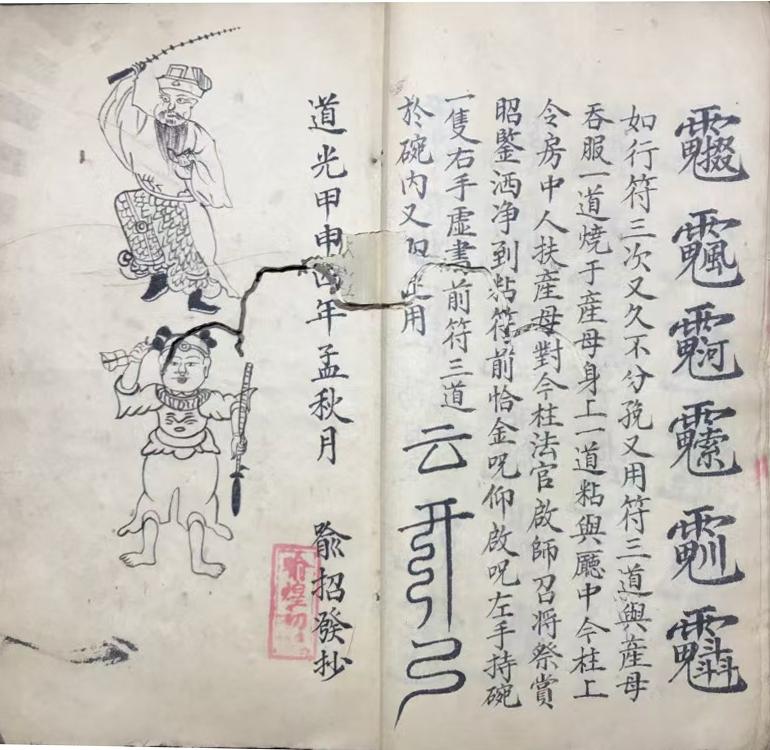 如行符三次又久不分娩又用符三道與產母
吞服一道燒于產母身上一道粘與廳中今柱上
令房中人扶產母對今柱法官啟師召将祭賞
昭鍳洒净到粘符前恰金呪仰啟呪左手持碗
一隻右手虛書前符三道
於碗內又用
云
道光甲申四年孟秋月
喻招發抄